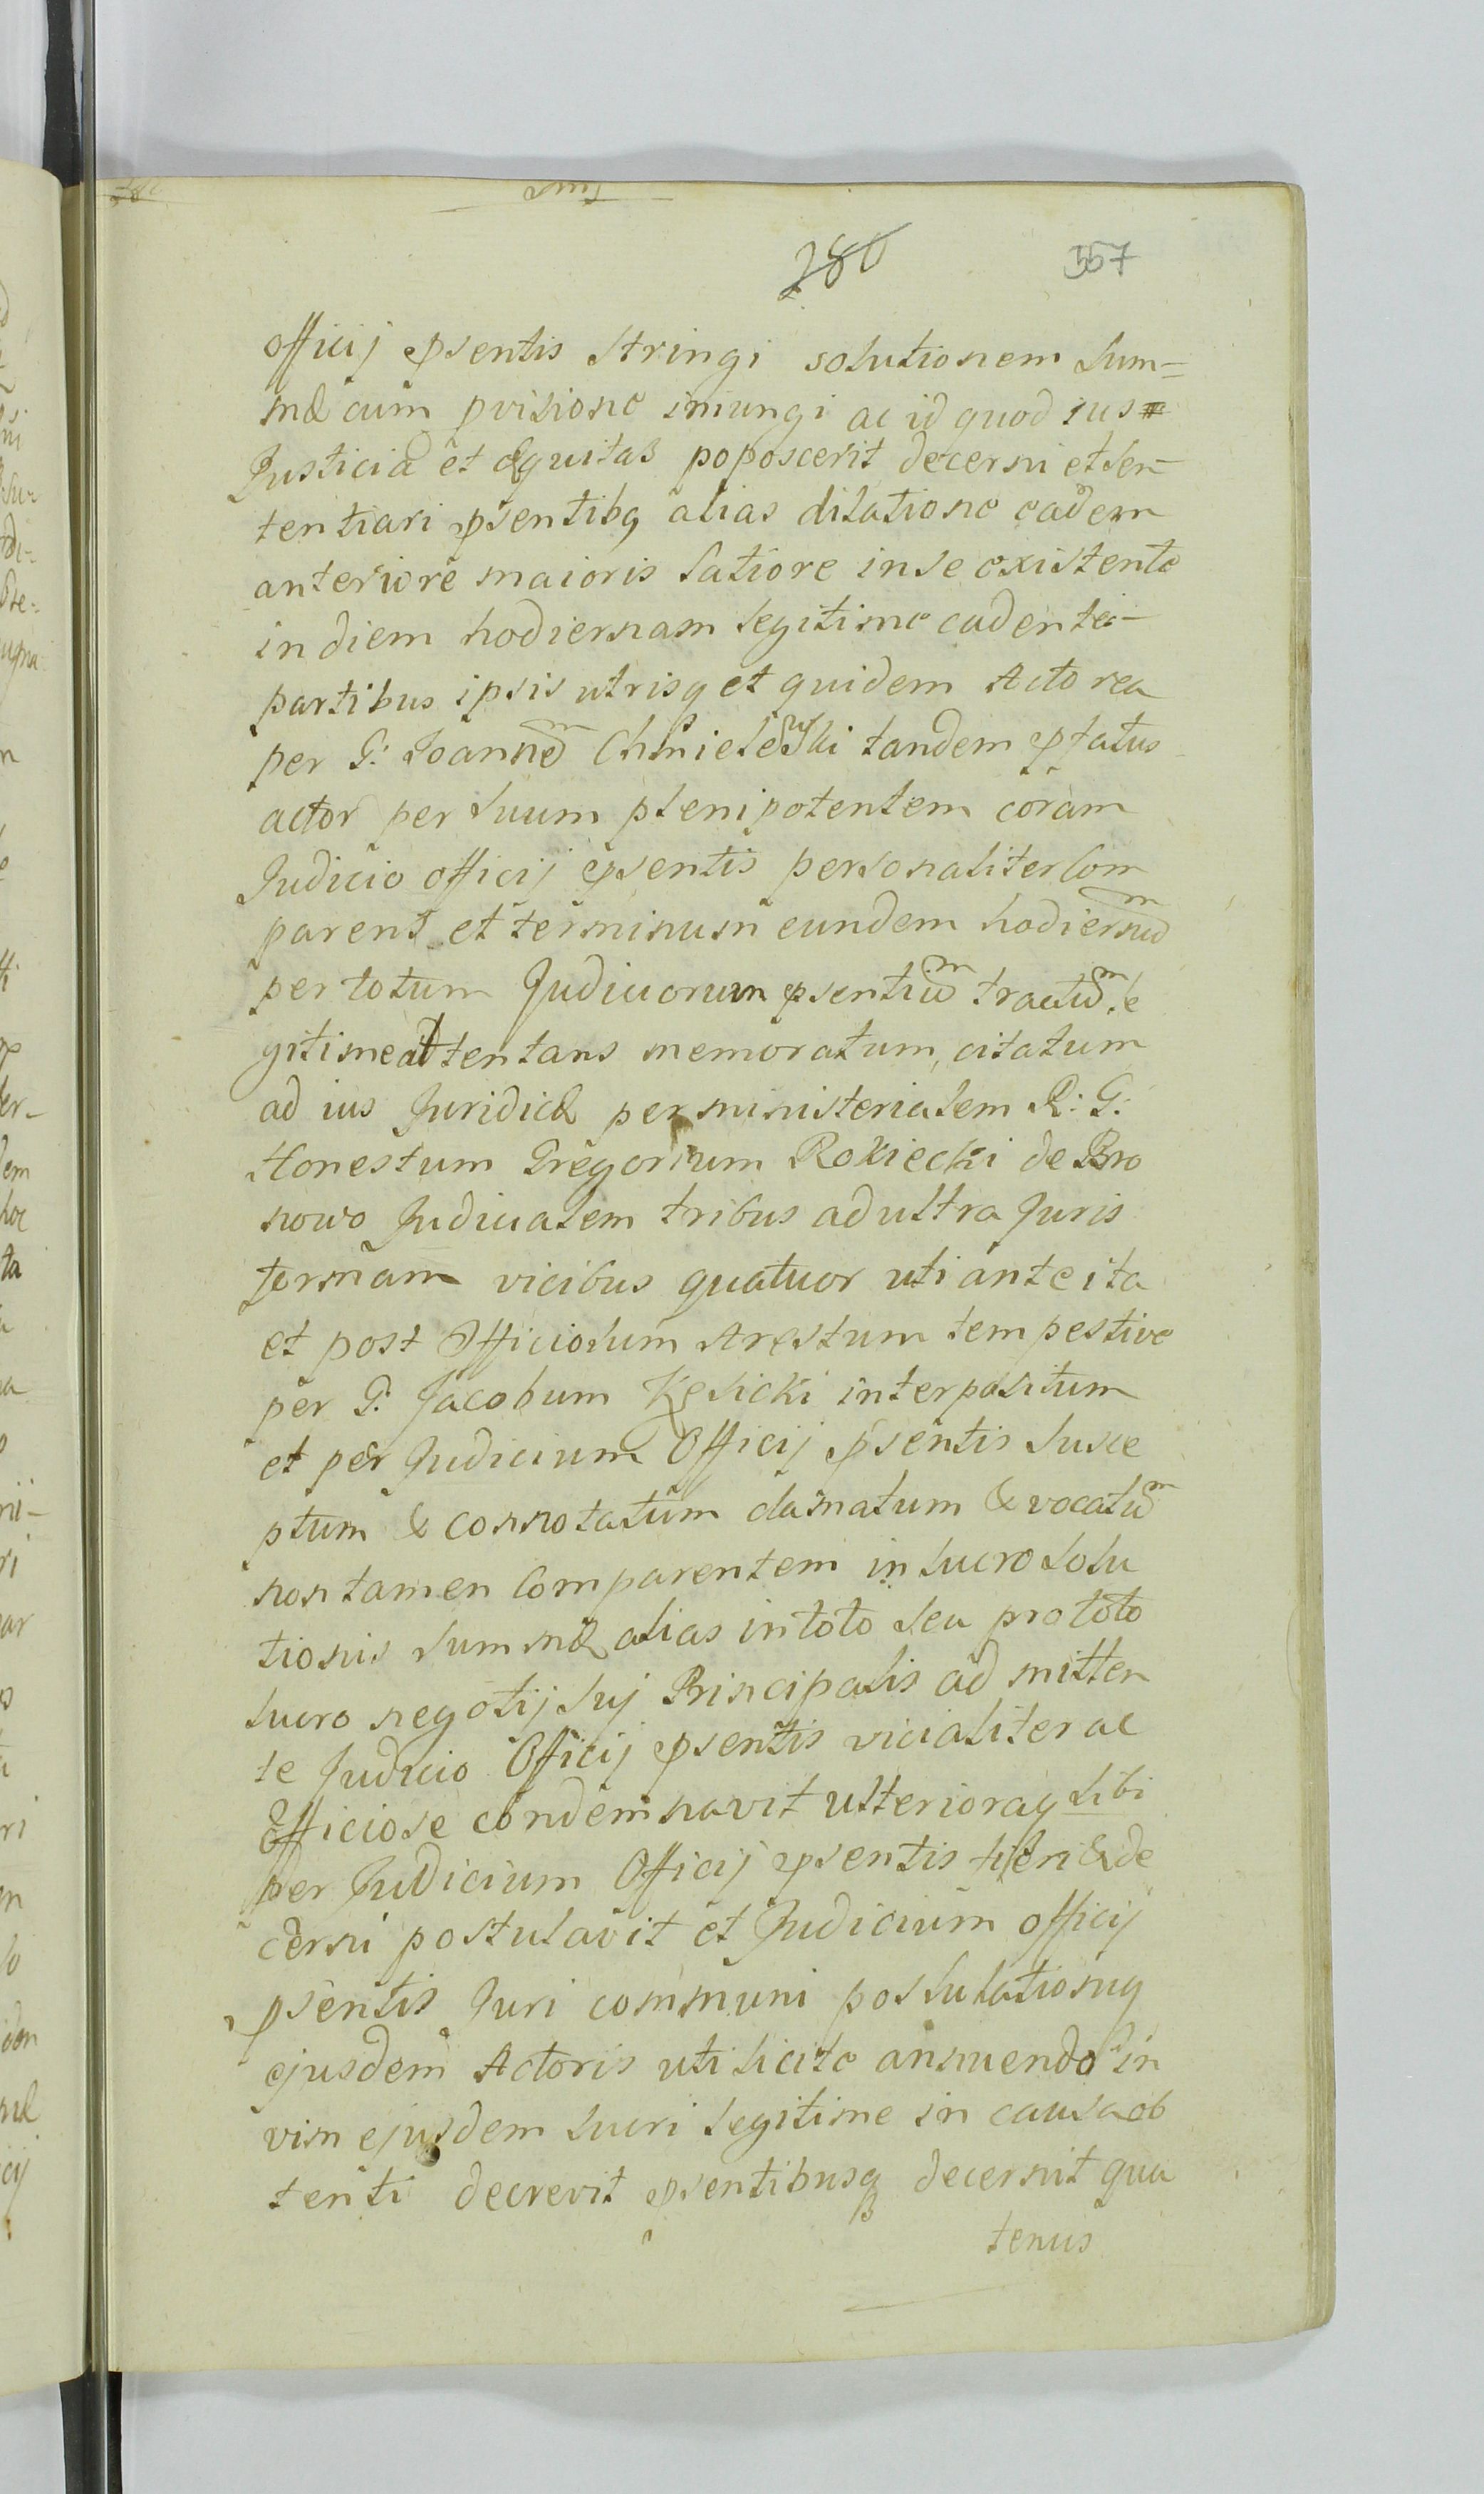 280 357
officij pñsentis stringi solutionem sum=
mæ cum pvisione iniungi ac id quod ius
Justicia et Æquitas poposcerit decerni et sen-
tentiari psentibq alias dilatione eadem
anteriore maioris latiore in se existente
in diem hodiernam legitime cadente-
partibus ipsis utrisq et quidem Actorea
per G: Joannem Chmielewski tandem pfatus
actor per suum plenipotentem coram
Judicio officij psentis personaliter Com
parens et terminum eundem hodiernum
per totum Judiciorum psentium tractum le
gitime attentans memoratum, citatum
ad ius Juridice per ministerialem R: G:
Honestum Gregorium Rokiecki de Bro
nowo Judicialem tribus ad ultra Juris
formam vicibus quatuor uti ante ita
et post Officiosum Arestum tempestive
per G: Jacobum Kęsicki interpositum
et per Judicium Officij psentis susce
ptum & connotatum clamatum & vocatum
non tamen Comparentem in lucro solu
tionis summæ alias in toto seu pro toto
lucro negotij sui Principalis admitten
te Judicio Officij psentis vicialiter ac
Officiose condemnavit ulterioraq sibi
per Judicium Officij psentis fieri & de
cerni postulavit et Judicium officij
psentis Juri communi postulationiq
ejusdem Actoris uti licite annuendo in
vim ejusdem lucri legitime in causa ob
tenti decrevit psentibusq decernit qua
tenus